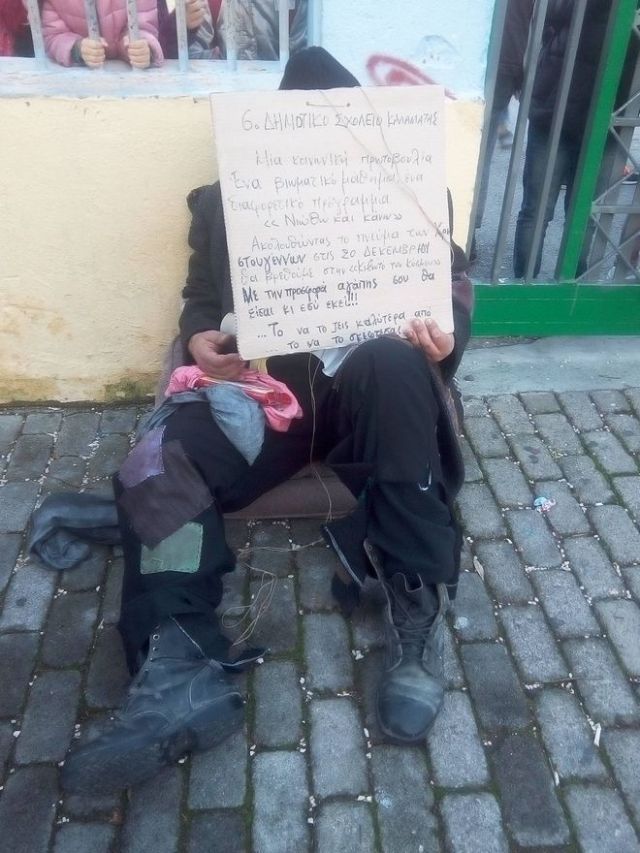 6ο ΔΗΜΟΤΙΚΟ ΣΧΟΛΕΙΟ ΚΑΛΑΜΑΤΑΣ
Μια κοινωνική πρωτοβουλία
Ένα βιωματικό μάθημα, ένα
διαφορετικό πρόγραμμα
<< Νιώθω και κάνω>>
Ακολουθώντας το πνεύμα των
στουγέννων στις 20 ΔΕΚΕΜΒΡΙΟΥ
θα βρεθούμε στην
Με την προσφορά αγάπης σου θα
είσαι κι εσύ εκεί!!!
...Το να το δεις καλύτερα από
...το να το σκέφτεσαι